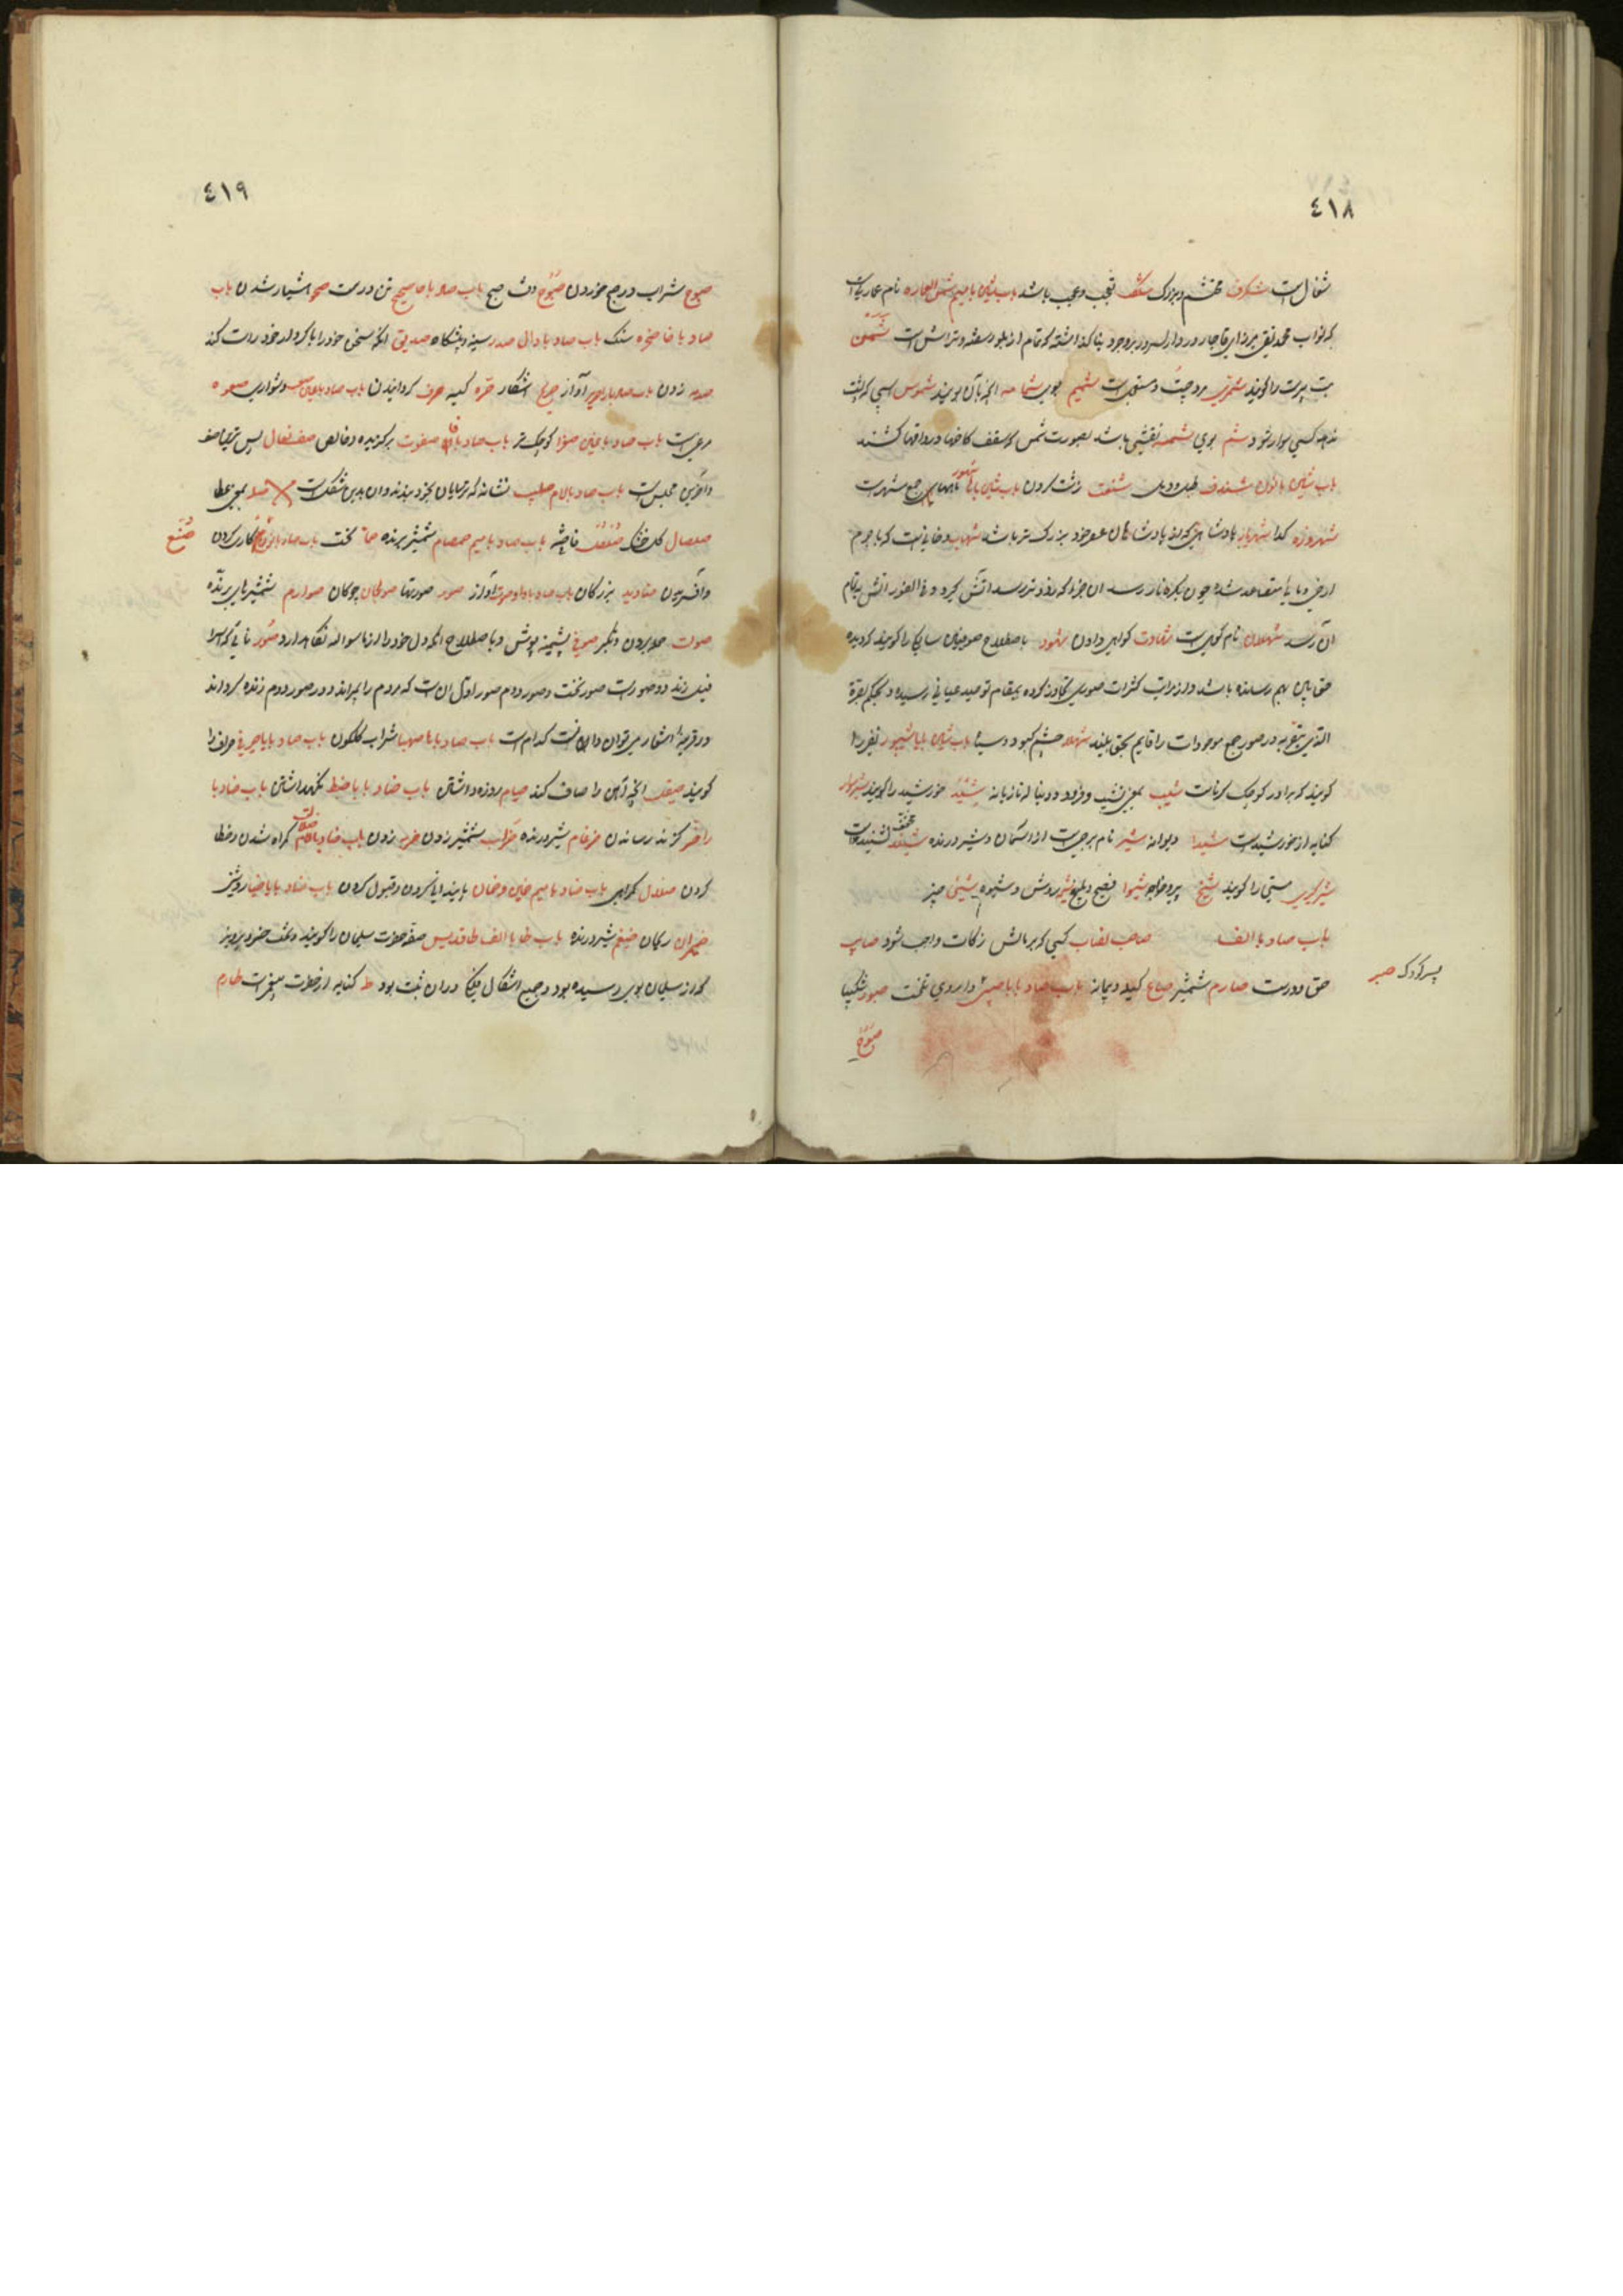 ٤١٨
شغال است شگرف محتشم و بزرگ شگفت تعجب و عجب باشد باب شین با میم شمس العماره نام عماریست
که نواب محمد تقی میرزای قاجار در دارالسرور بروجرد بنا گذاشته که تمام از بلور سفته و تراش است شمن
بت پرست را گویند شمیم بوی شمامه آنچه بآن بویند شموس اسبی که نگذارد
کسی سوار شود شم بوی شمسه نقشی باشد بصورت شمس که سقف کاخها و رواقها کشند
باب شین با نون شندف طبل و دهل شنقت زشت کردن باب شین با ها شهور ماهها جمع شهر است
شهروزه گدا شهریار پادشاهی که از پادشاهان عصر خود بزرگ تر باشد شهاب دخانی است که با جرم
ارضی و مایی متصاعد شده چون بکره نار رسد آن جزء که زودتر رسد آتش گیرد و فی الفور آتش بتمام
آن رسد شهلان نام کوهی است شهادت گواهی دادن شهود باصطلاح صوفیان سالک را گویند که دیده
حق بین بهم رسانده باشد و از مراتب کثرات صوری تجاوز کرده بمقام توحید عیانی رسیده و بحکم
در صور جمیع موجودات را قایم بحق بیند شهلا چشم کبود و سیاه باب شین با یا شیپور نفیر را
گویند که برادر کوچک کرنات شیب بمعنی نشیب و فرود و دنباله تازیانه شید خورشید را گویند
کنایه از خورشید است شیدا دیوانه شیر نام برجی است از آسمان و شیر درنده
شیرگیری مستی را گویند شیخ پیر و خواجه شیوا فصیح و بلیغ شیوه روش و شیوه شیئی چیز
باب صاد با الف صاحب نصاب کسی که بر مالش زکات واجب شود صایب
حق و درست صارم شمشیر صاع کیله و پیمانه باب صاد با با صبر داروی تلخست صبور شکیبا
پسر کودک صبی
صبوح
٤١٩
صبوح شراب در صبح خوردن صبوح وقت صبح باب صاد با حا صحیح تن درست صحو هشیار شدن باب
صاد با خا صخره سنگ باب صاد با دال صدر سینه و پیشگاه صدیق آنکه سخن خود را با کردار خود راست کند
صدمه زدن باب صاد با را صریر آواز صریح آشکار صره کیسه صرف گردانیدن باب صاد با عین صعب دشواری صعوه
مرغیست باب صاد با غین صغرا کوچک تر باب صاد با فا صفوت برگزیده و خالص صف نعال پس ترین صف
و آخرین مجلس است باب صاد با لام صلیب نشانه که ترسایان بخود بندند و آن بدین شکل است صله بمعنی عطا
صلصال گل خشک فاحشه باب صاد با میم صمصام شمشیر برنده باب صاد با نون صنع کاری کردن
صنع
و آفریدن صنادید بزرگان باب صاد با واو صوت آواز صور صورتها صولجان چوگان صوارم شمشیرهای برنده
صولت حمله بردن و تکبر صوفی پشمینه پوش و باصطلاح آنکه دل خود را از ما سوا الله نگاه دارد صور نائی که اسرا
فیل زند و دو صور است صور نخست و صور دوم صور اول آن است که مردم را بمیراند و در صور دوم زنده گرداند
در قرینهٔ اشعار می توان دانست کدام است باب صاد با ها صهبا شراب گلگون باب صاد با یا صیرفی صراف را
گویند صیقل آنچه آهن را صاف کند صیام روزه داشتن باب ضاد با با ضبط نگهداشتن باب ضاد با
را ضر گزند رسانیدن ضرغام شیر درنده ضراب شمشیر زدن ضرب زدن باب ضاد با لام ضلالت گمراه شدن و خطا
کردن ضلال گمراهی باب ضاد با میم ضمین و ضمان پایندانی کردن و قبول کردن باب ضاد با یا ضیا روشنی
ضیمران ریحان ضیغم شیر درنده باب طا با الف طاقدیس صفه حضرت سلیمان را گویند و تخت خسرو پرویز
که از سلیمان بوی رسیده بود و جمیع اشکال فلک در آن ثبت بود طه کنایه از حضرت پیغمبر است طارم